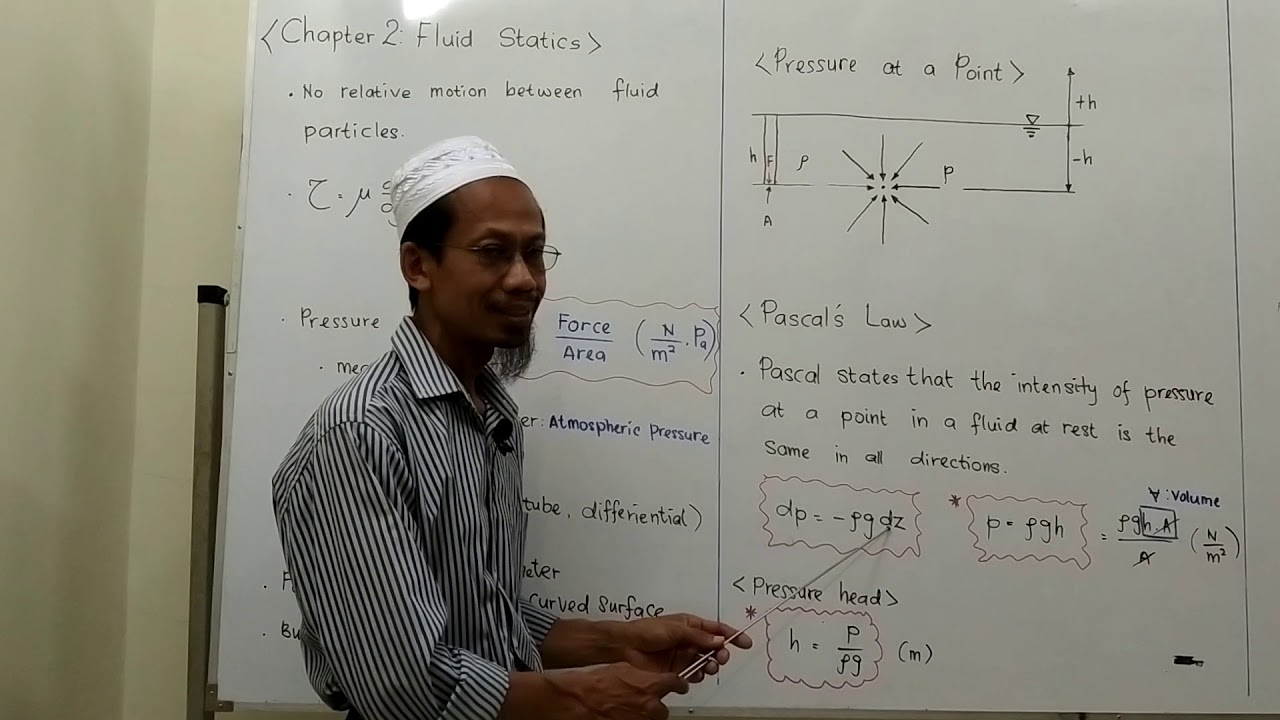 <Chapter 2: Fluid Statics>
• No relative motion between fluid
particles.
• τ = μ
• Pressure
Force
Area
(N/m², Pa)
er: Atmospheric pressure
tube, differiential)
Curved Surface
<Pressure at a Point>
+h
-h
h F ρ P
A
<Pascal's Law>
• Pascal states that the intensity of pressure
at a point in a fluid at rest is the
same in all directions.
∀: Volume
dp = -ρgdz
* p = ρgh = ρghA/A (N/m²)
<Pressure head>
* h = P/ρg (m)